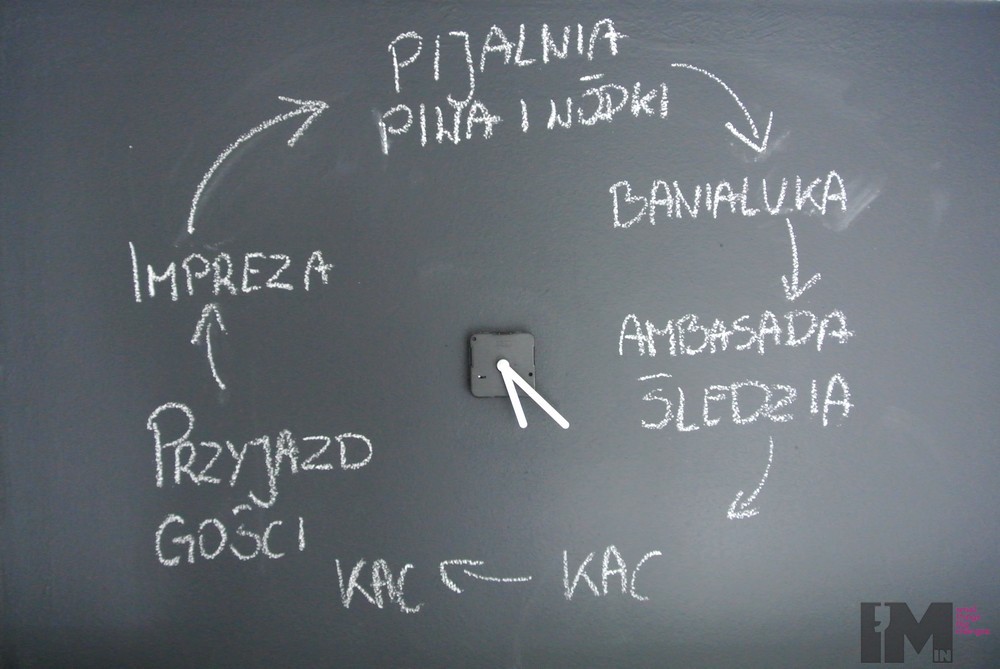 PIJALNIA
PIWA I NÓŻKI
BANIALUKA
IMPREZA
AMBASADA
ŚLEDZIA
PRZYJAZD
GOŚCI
KAC
KAC
I'M
IN